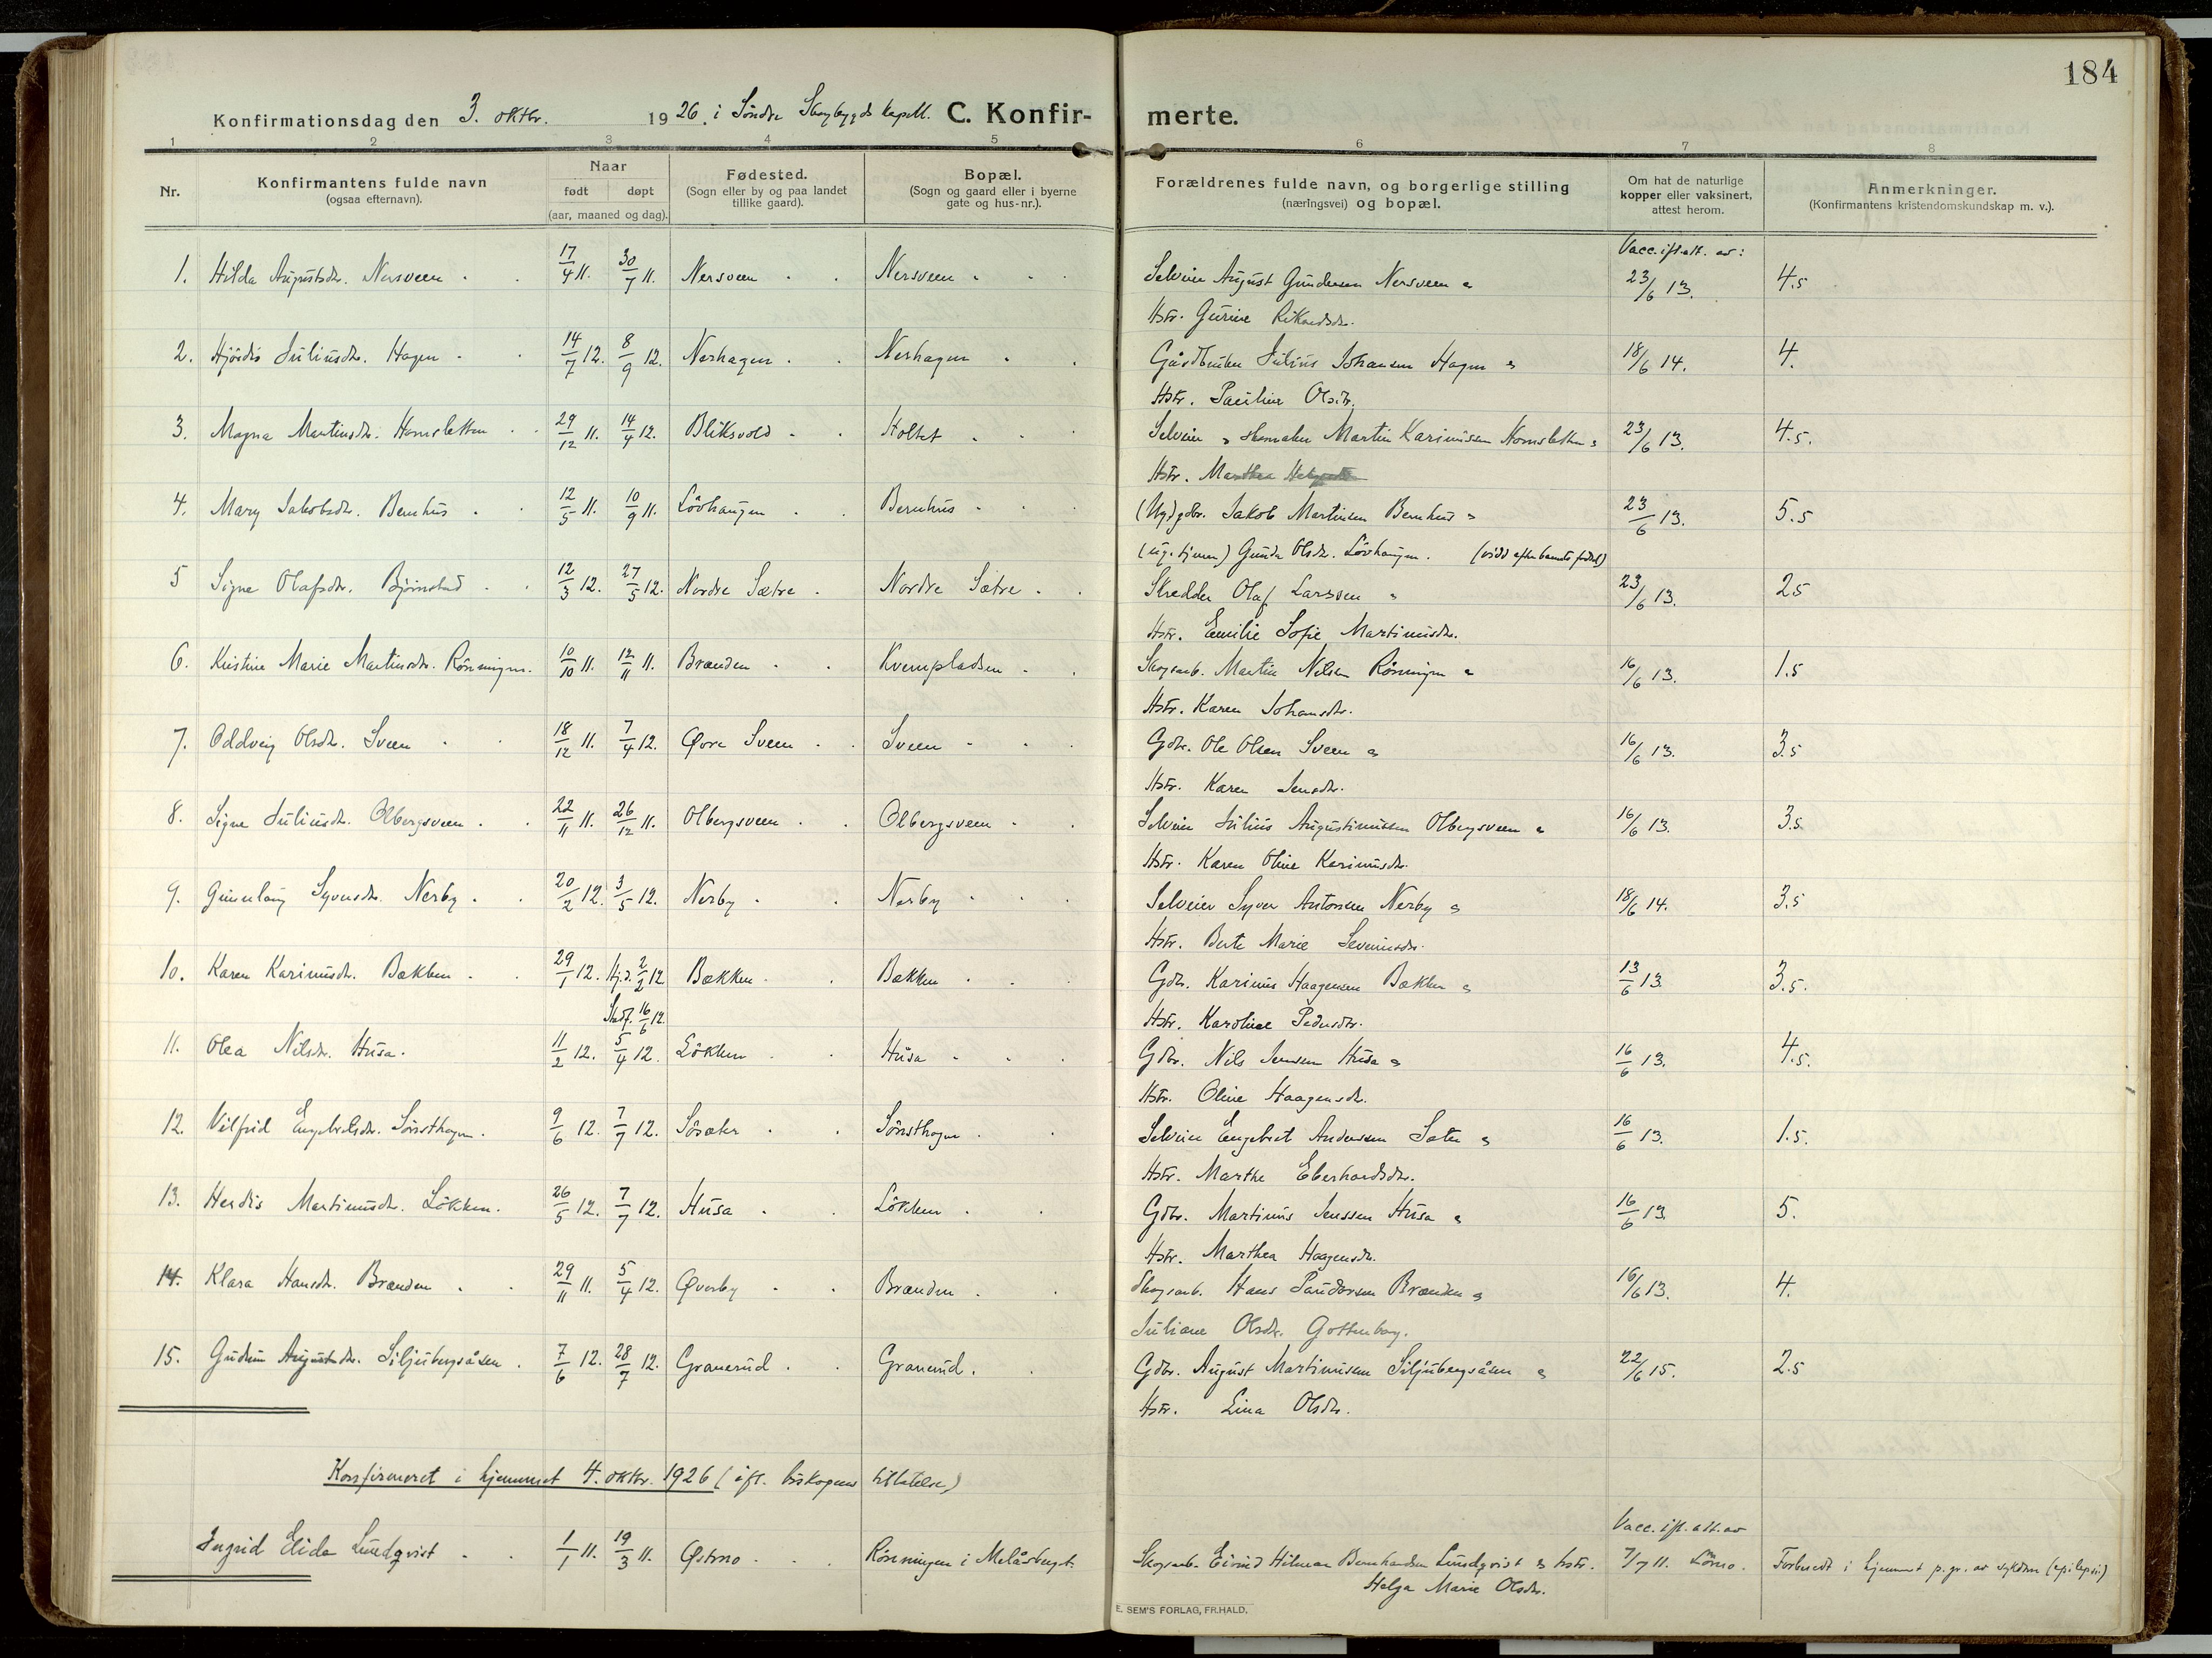 184
Konfirmationsdag den 3. oktbr. 1926. i Söndre Skogbygds kapell. C. Konfir- merte.
1 2 3 4 5 6 7 8
Nr. Konfirmantens fulde navn (ogsaa efternavn). Naar født døpt (aar, maaned og dag). Fødested. (Sogn eller by og paa landet tillike gaard). Bopæl. (Sogn og gaard eller i byerne gate og hus-nr.). Forældrenes fulde navn, og borgerlige stilling (næringsvei) og bopæl. Om hat de naturlige kopper eller vaksinert, attest herom. Anmerkninger. (Konfirmantens kristendomskundskap m. v.).
Vacc. ifl. att. av:
1. Hilda Augustsdtr. Nersveen 17/4 11. 30/7 11. Nersveen Nersveen Selveier August Gundersen Nersveen & 23/6 13. 4.5
Hstr. Gurine Rikardsdtr.
2. Hjördis Juliusdtr. Hagen 14/7 12. 8/9 12. Nerhagen Nerhagen Gårdbruker Julius Johansen Hagen & 18/6 14. 4.
Hstr. Pauline Olsdtr.
3. Magna Martinsdtr. Hornsletten 29/12 11. 14/4 12. Bliksvold Holtet Selveier Martin Karinussen Hornsletten & 23/6 13. 4.5.
Hstr. Marthea
4. Mary Jakobsdtr. Bernhus 12/5 11. 10/9 11. Lövhaugen Bernhus (Ug.) gdbr. Jakob Martinsen Bernhus & 23/6 13. 5.5
(ug. tjener) Gunda Olsdtr. Lövhaugen. (vidd efter barnets födsel)
5 Signe Olafsdtr. Björnstad 12/3 12. 27/5 12. Nordre Sætre Nordre Sætre Skredder Olaf Larssen & 23/6 13. 2.5
Hstr. Emilie Sofie Martinusdtr.
6. Kristine Marie Martinsdtr. Rönningen. 10/10 11. 12/11 11. Brænden Kvernpladsen Skogsarb. Martin Nilsen Rönningen & 16/6 13. 1.5
Hstr. Karen Johansdtr.
7. Oddveig Olsdtr. Sveen 18/12 11. 7/4 12. Øvre Sveen Sveen Gdbr. Ole Olsen Sveen & 16/6 13. 3.5
Hstr. Karen Jensdtr.
8. Signe Juliusdtr. Olbergsveen 22/11 11. 26/12 11. Olbergsveen Olbergsveen Selveier Julius Augustinussen Olbergsveen & 16/6 13. 3.5
Hstr. Karen Oline Karinusdtr.
9. Gunnlaug Syversdtr. Nerby 20/2 12. 3/5 12. Nerby Nerby Selveier Syver Antonsen Nerby & 18/6 14. 3.5
Hstr. Berte Marie Severinsdtr.
10. Karen Karinusdtr. Bækken 29/1 12. Hj.d. 2/2 12. Bækken Bækken Gdbr. Karinus Haagensen Bækken & 13/6 13. 3.5.
Stadf. 16/6 12. Hstr. Karoline Pedersdtr.
11. Olea Nilsdtr. Husa. 11/2 12. 5/4 12. Lökken Husa Gdbr. Nils Jensen Husa & 16/6 13. 4.5.
Hstr. Oline Haagensdtr.
12. Vilfrid Engebretsdtr. Sörusthagen. 9/6 12. 7/7 12. Sörusthagen Selveier Engebret Andersen Sæter & 16/6 13. 1.5.
Hstr. Marthe Eberhardsdtr.
13. Herdis Martinusdtr. Lökken. 26/5 12. 7/7 12. Husa Lökken Gdbr. Martinus Jenssen Husa & 16/6 13. 5.
Hstr. Marthea Haagensdtr.
14. Klara Hansdtr. Brænden 29/11 11. 5/4 12. Øverby Brænden Skogsarb. Hans Brænden & 16/6 13. 4.
Juliane Olsdtr. Gottenborg.
15. Gudrun Augustsdtr. Siljubergsåsen 7/6 12. 28/7 12. Granerud Granerud. Gdbr. August Martinusen Siljubergsåsen & 22/6 15. 2.5
Hstr. Lina Olsdtr.
Konfirmeret i hjemmet 4. oktbr. 1926 (ifl. biskopens tillatelse)
Vacc. ifl. att. av
Ingrid Elida Lundqvist 1/1 11. 19/3 11. Østmo Rönningen i Melåsberget. Skogsarb. Eivind Hilman Bernhardsen Lundqvist & hstr. 7/7 11. Lömo. Forberedt i hjemmet p. gr. av sykdom (epilepsi)
Helga Marie Olsdtr.
E. SEM'S FORLAG, FR.HALD.